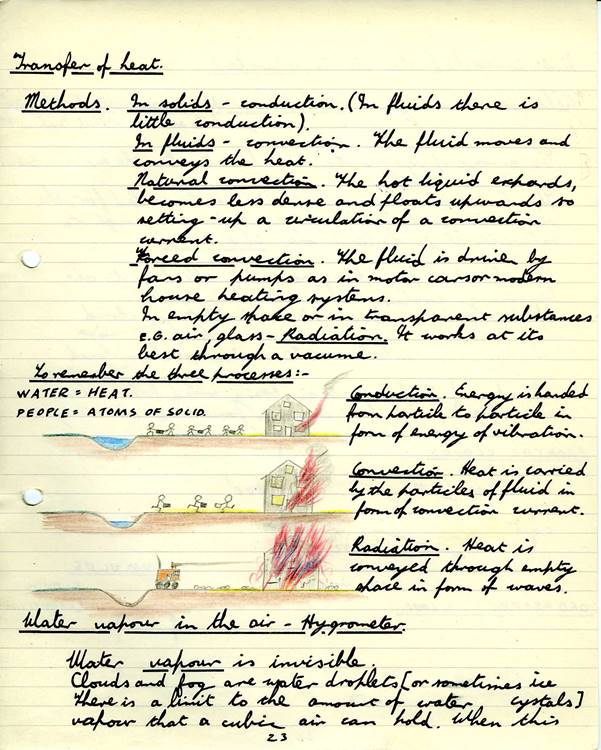 Transfer of heat.
Methods. In solids - conduction. (In fluids there is
little conduction).
In fluids - convection. The fluid moves and
conveys the heat.
Natural convection. The hot liquid expands,
becomes less dense and floats upwards so
setting-up a circulation of a convection
current.
Forced convection. The fluid is driven by
fans or pumps as in motor cars or modern
house heating systems.
In empty space or in transparent substances
e.G. air, glass - Radiation. It works at its
best through a vacume.
To remember the three processes:-
WATER = HEAT.
PEOPLE = ATOMS OF SOLID.
Conduction. Energy is handed
from particle to particle in
form of energy of vibration.
Convection. Heat is carried
by the particles of fluid in
form of convection current.
Radiation. Heat is
conveyed through empty
space in form of waves.
Water vapour in the air - Hygrometer.
Water vapour is invisible.
Clouds and fog are water droplets [or sometimes ice
There is a limit to the amount of water cystals]
vapour that a cubic air can hold. When this
23